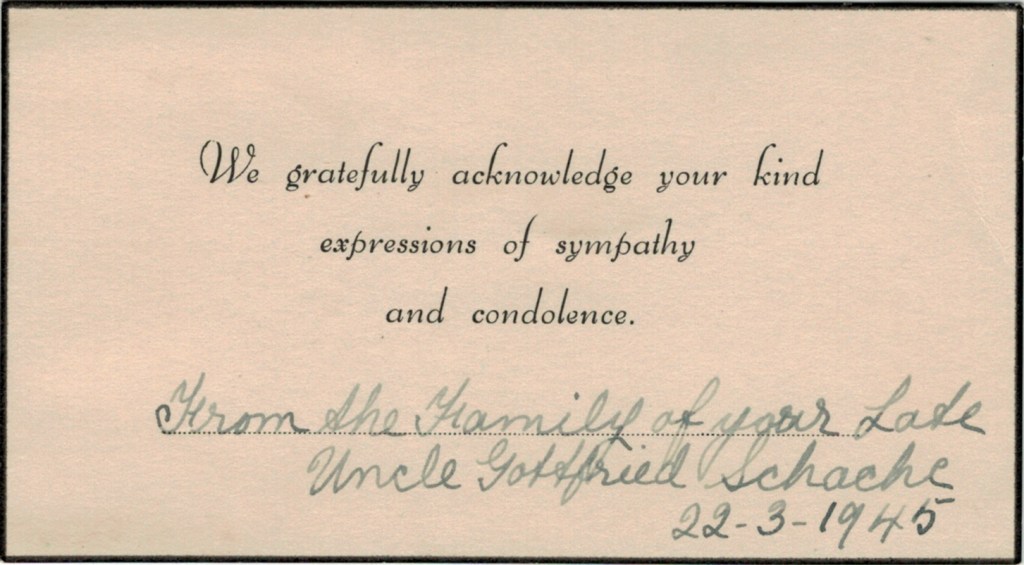 We gratefully acknowledge your kind
expressions of sympathy
and condolence.
From the Family of your Late
Uncle Gottfried Schache
22-3-1945